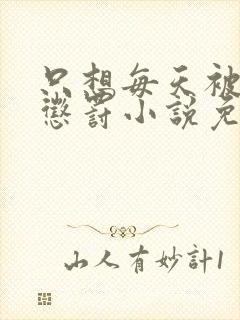 只想每天被
懲罰小説免
山人有妙計1